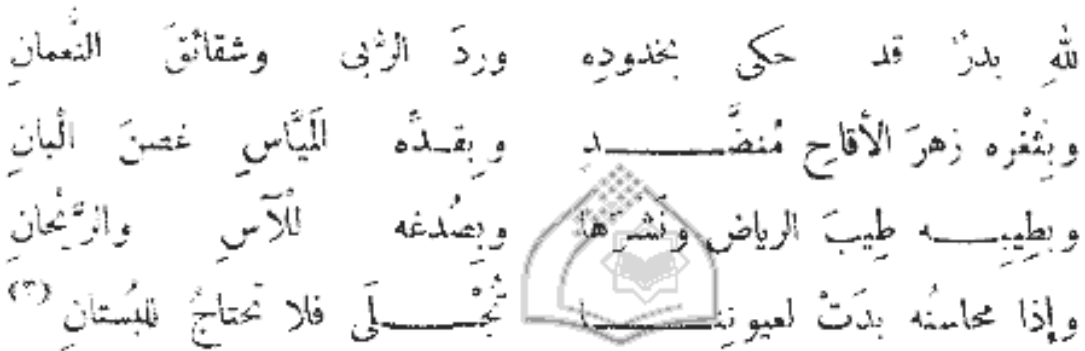 للهِ بدرٌ قد حكى بخدودِه وردَ الرُّبى وشقائقَ النُّعمانِ
وبثَغْره زهرَ الأقاحِ مُنضَّـــــد وبقـدِّه المَيَّاسِ غصنَ الْبانِ
وبطِيبِـــــه طِيبَ الرياضِ ونَشْرَها وبصُدغه للْآسِ والرَّيْحانِ
وإذا محاسنُه بدَتْ لعيوننـــــا تُجْـــــلَى فلا نحتاجُ للبُستانِ (٣)